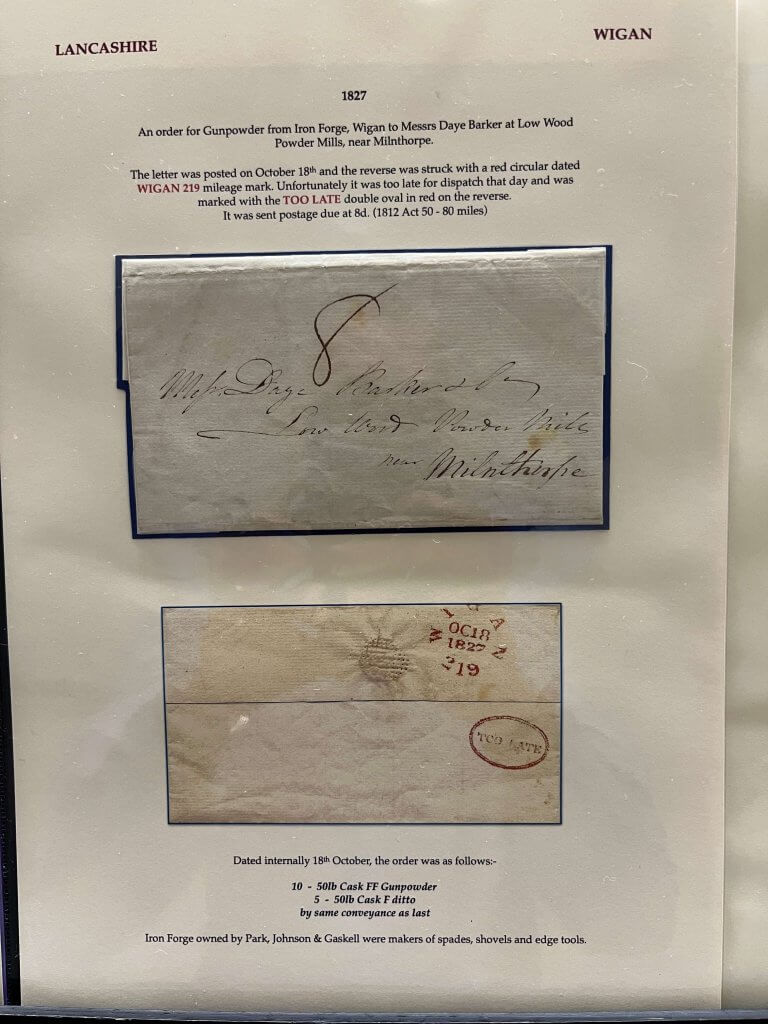 LANCASHIRE
WIGAN
1827
An order for Gunpowder from Iron Forge, Wigan to Messrs Daye Barker at Low Wood
Powder Mills, near Milnthorpe.
The letter was posted on October 18th and the reverse was struck with a red circular dated
WIGAN 219 mileage mark. Unfortunately it was too late for dispatch that day and was
marked with the TOO LATE double oval in red on the reverse.
It was sent postage due at 8d. (1812 Act 50 - 80 miles)
8
Messrs. Daye Barker & Co
Low Wood Powder Mills
near Milnthorpe
WIGAN
OC18
1827
219
TOO LATE
Dated internally 18th October, the order was as follows:-
10 - 50lb Cask FF Gunpowder
5 - 50lb Cask F ditto
by same conveyance as last
Iron Forge owned by Park, Johnson & Gaskell were makers of spades, shovels and edge tools.